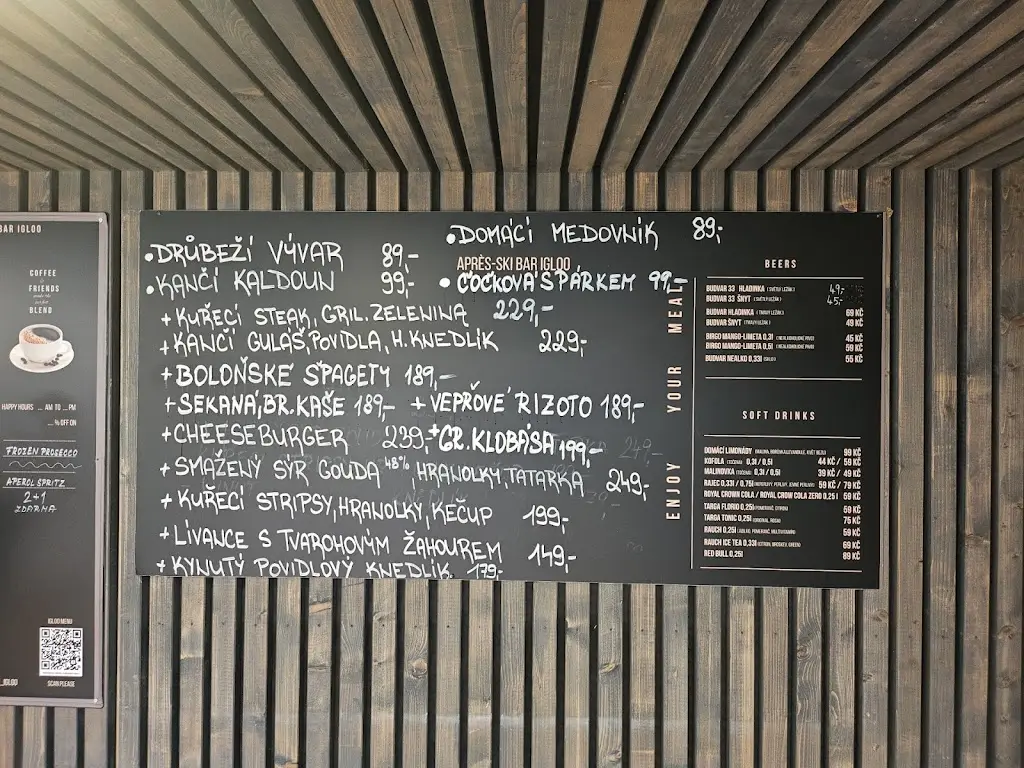 BAR IGLOO
COFFEE
FRIENDS
BLEND
HAPPY HOURS ... AM TO ... PM
... % OFF ON
FROZEN PROSECCO
APEROL ŠPRITZ
2+1
ZDARMA
IGLOO MENU
SCAN PLEASE
_IGLOO
•DOMÁCÍ MEDOVNÍK 89,-
•DRŮBEŽÍ VÝVAR 89,-
APRÈS-SKI BAR IGLOO
•KANČÍ KALDOUN 99,-
•ČOČKOVÁ S PÁRKEM 99,-
+KUŘECÍ STEAK, GRIL. ZELENINA 229,-
+KANČÍ GULÁŠ, POVIDLA, H. KNEDLÍK 229,-
+BOLOŇSKÉ ŠPAGETY 189,-
+SEKANÁ, BR. KAŠE 189,-
+VEPŘOVÉ RIZOTO 189,-
+CHEESEBURGER 239,-
+GR. KLOBÁSA 199,-
+SMAŽENÝ SÝR GOUDA 48%, HRANOLKY, TATARKA 249,-
+KUŘECÍ STRIPSY, HRANOLKY, KEČUP 199,-
+LÍVANCE S TVAROHOVÝM ŽAHOUREM 149,-
+KYNUTÝ POVIDLOVÝ KNEDLÍK 179,-
ENJOY YOUR MEAL
BEERS
BUDVAR 33 HLADINKA (SVĚTLÝ LEŽÁK) 49,-
BUDVAR 33 ŠNYT (SVĚTLÝ LEŽÁK) 45,-
BUDVAR HLADINKA (TMAVÝ LEŽÁK) 69 KČ
BUDVAR ŠNYT (TMAVÝ LEŽÁK) 49 KČ
BIRGO MANGO-LIMETA 0,3l (NEALKOHOLICKÉ PIVO) 45 KČ
BIRGO MANGO-LIMETA 0,5l (NEALKOHOLICKÉ PIVO) 59 KČ
BUDVAR NEALKO 0,33l 55 KČ
SOFT DRINKS
DOMÁCÍ LIMONÁDY 99 KČ
KOFOLA (TOČENÁ) 0,3l / 0,5l 44 KČ / 59 KČ
MALINOVKA (TOČENÁ) 0,3l / 0,5l 39 KČ / 49 KČ
RAJEC 0,33l / 0,75l 59 KČ / 79 KČ
ROYAL CROWN COLA / ROYAL CROW COLA ZERO 0,25 l 59 KČ
TARGA FLORIO 0,25l 59 KČ
TARGA TONIC 0,25l 75 KČ
RAUCH 0,25l 59 KČ
RAUCH ICE TEA 0,33l 69 KČ
RED BULL 0,25l 89 KČ